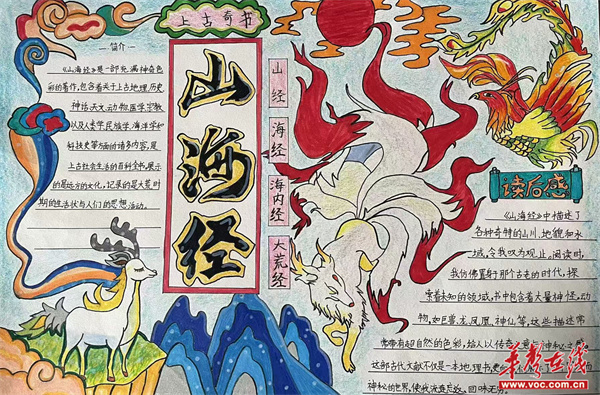 上古奇书
简介
《山海经》是一部充满神奇色
彩的著作,包含着关于上古地理、历史、
神话、天文、动物、医学、宗教
以及人类学、民族学、海洋学和
科技史等方面的诸多内容,是
上古社会生活的百科全书,展示
的是远方的文化,记录的是大荒时
期的生活状与人们的思想活动。
山海经
山经
海经
海内经
大荒经
读后感
《山海经》中描述了
各种奇特的山川、地貌和水
域,令我叹为观止,阅读时,
我仿佛置身那个古老的时代,探
索着未知的领域,书中包含着大量神怪、动
物,如巨兽、龙、凤凰、神仙等,这些描述常
常带有超自然的色彩,给人以传奇
这部古代文献不仅是一本地理书
神秘的世界,使我流连忘返,回味无穷。
华声在线
www.voc.com.cn